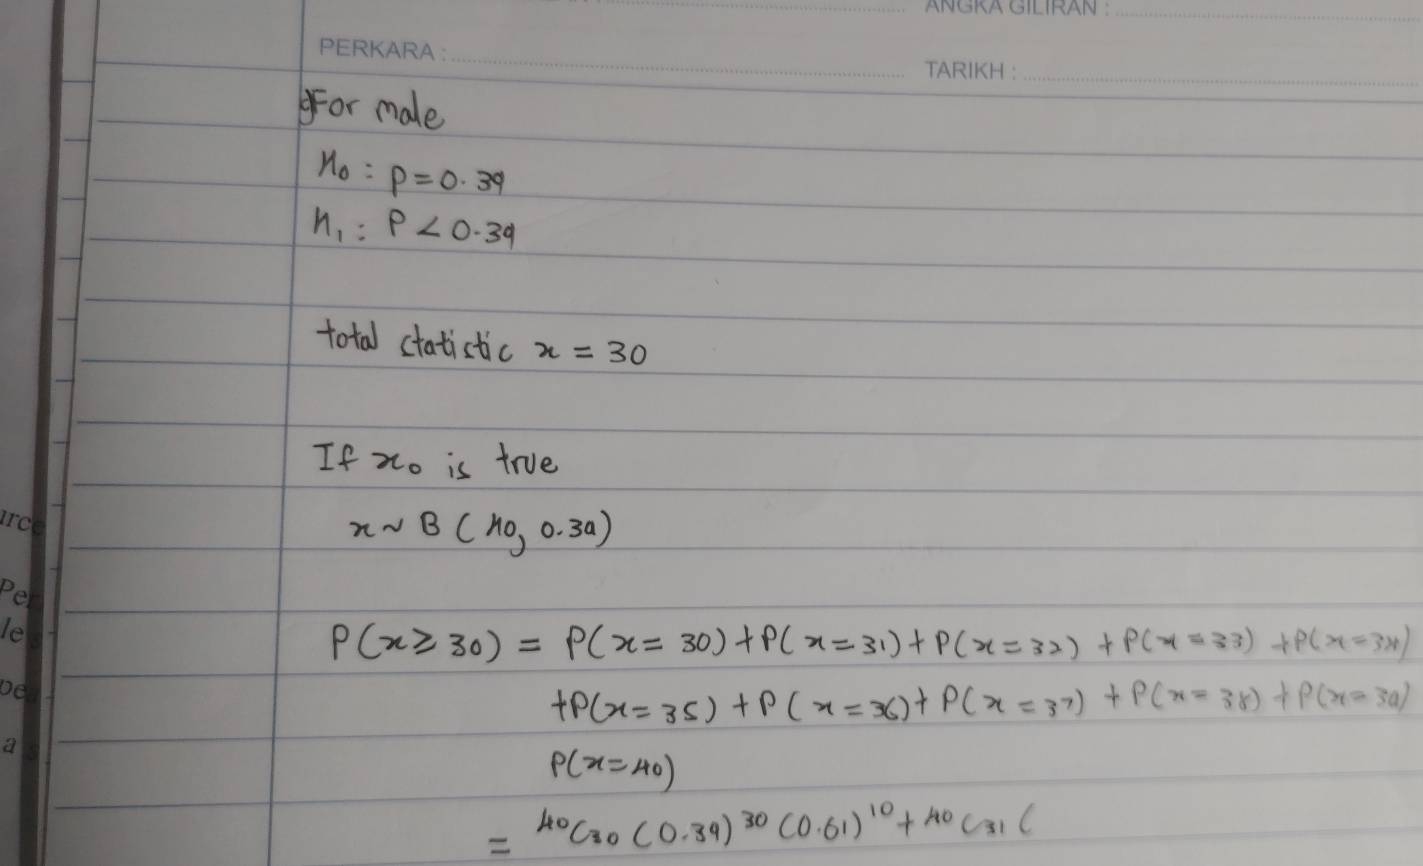 ANGKA GILIRAN :
PERKARA :
TARIKH :
For male
H₀ : p = 0.39
H₁ : P < 0.39
total statistic x = 30
If x₀ is true
x ~ B ( 40, 0.39)
P(x ≥ 30) = P(x = 30) + P(x = 31) + P(x = 32) + P(x = 33) + P(x = 34)
+P(x = 35) + P(x = 36) + P(x = 37) + P(x = 38) + P(x = 39)
P(x = 40)
= ⁴⁰C₃₀ (0.39)³⁰ (0.61)¹⁰ + ⁴⁰C₃₁ (